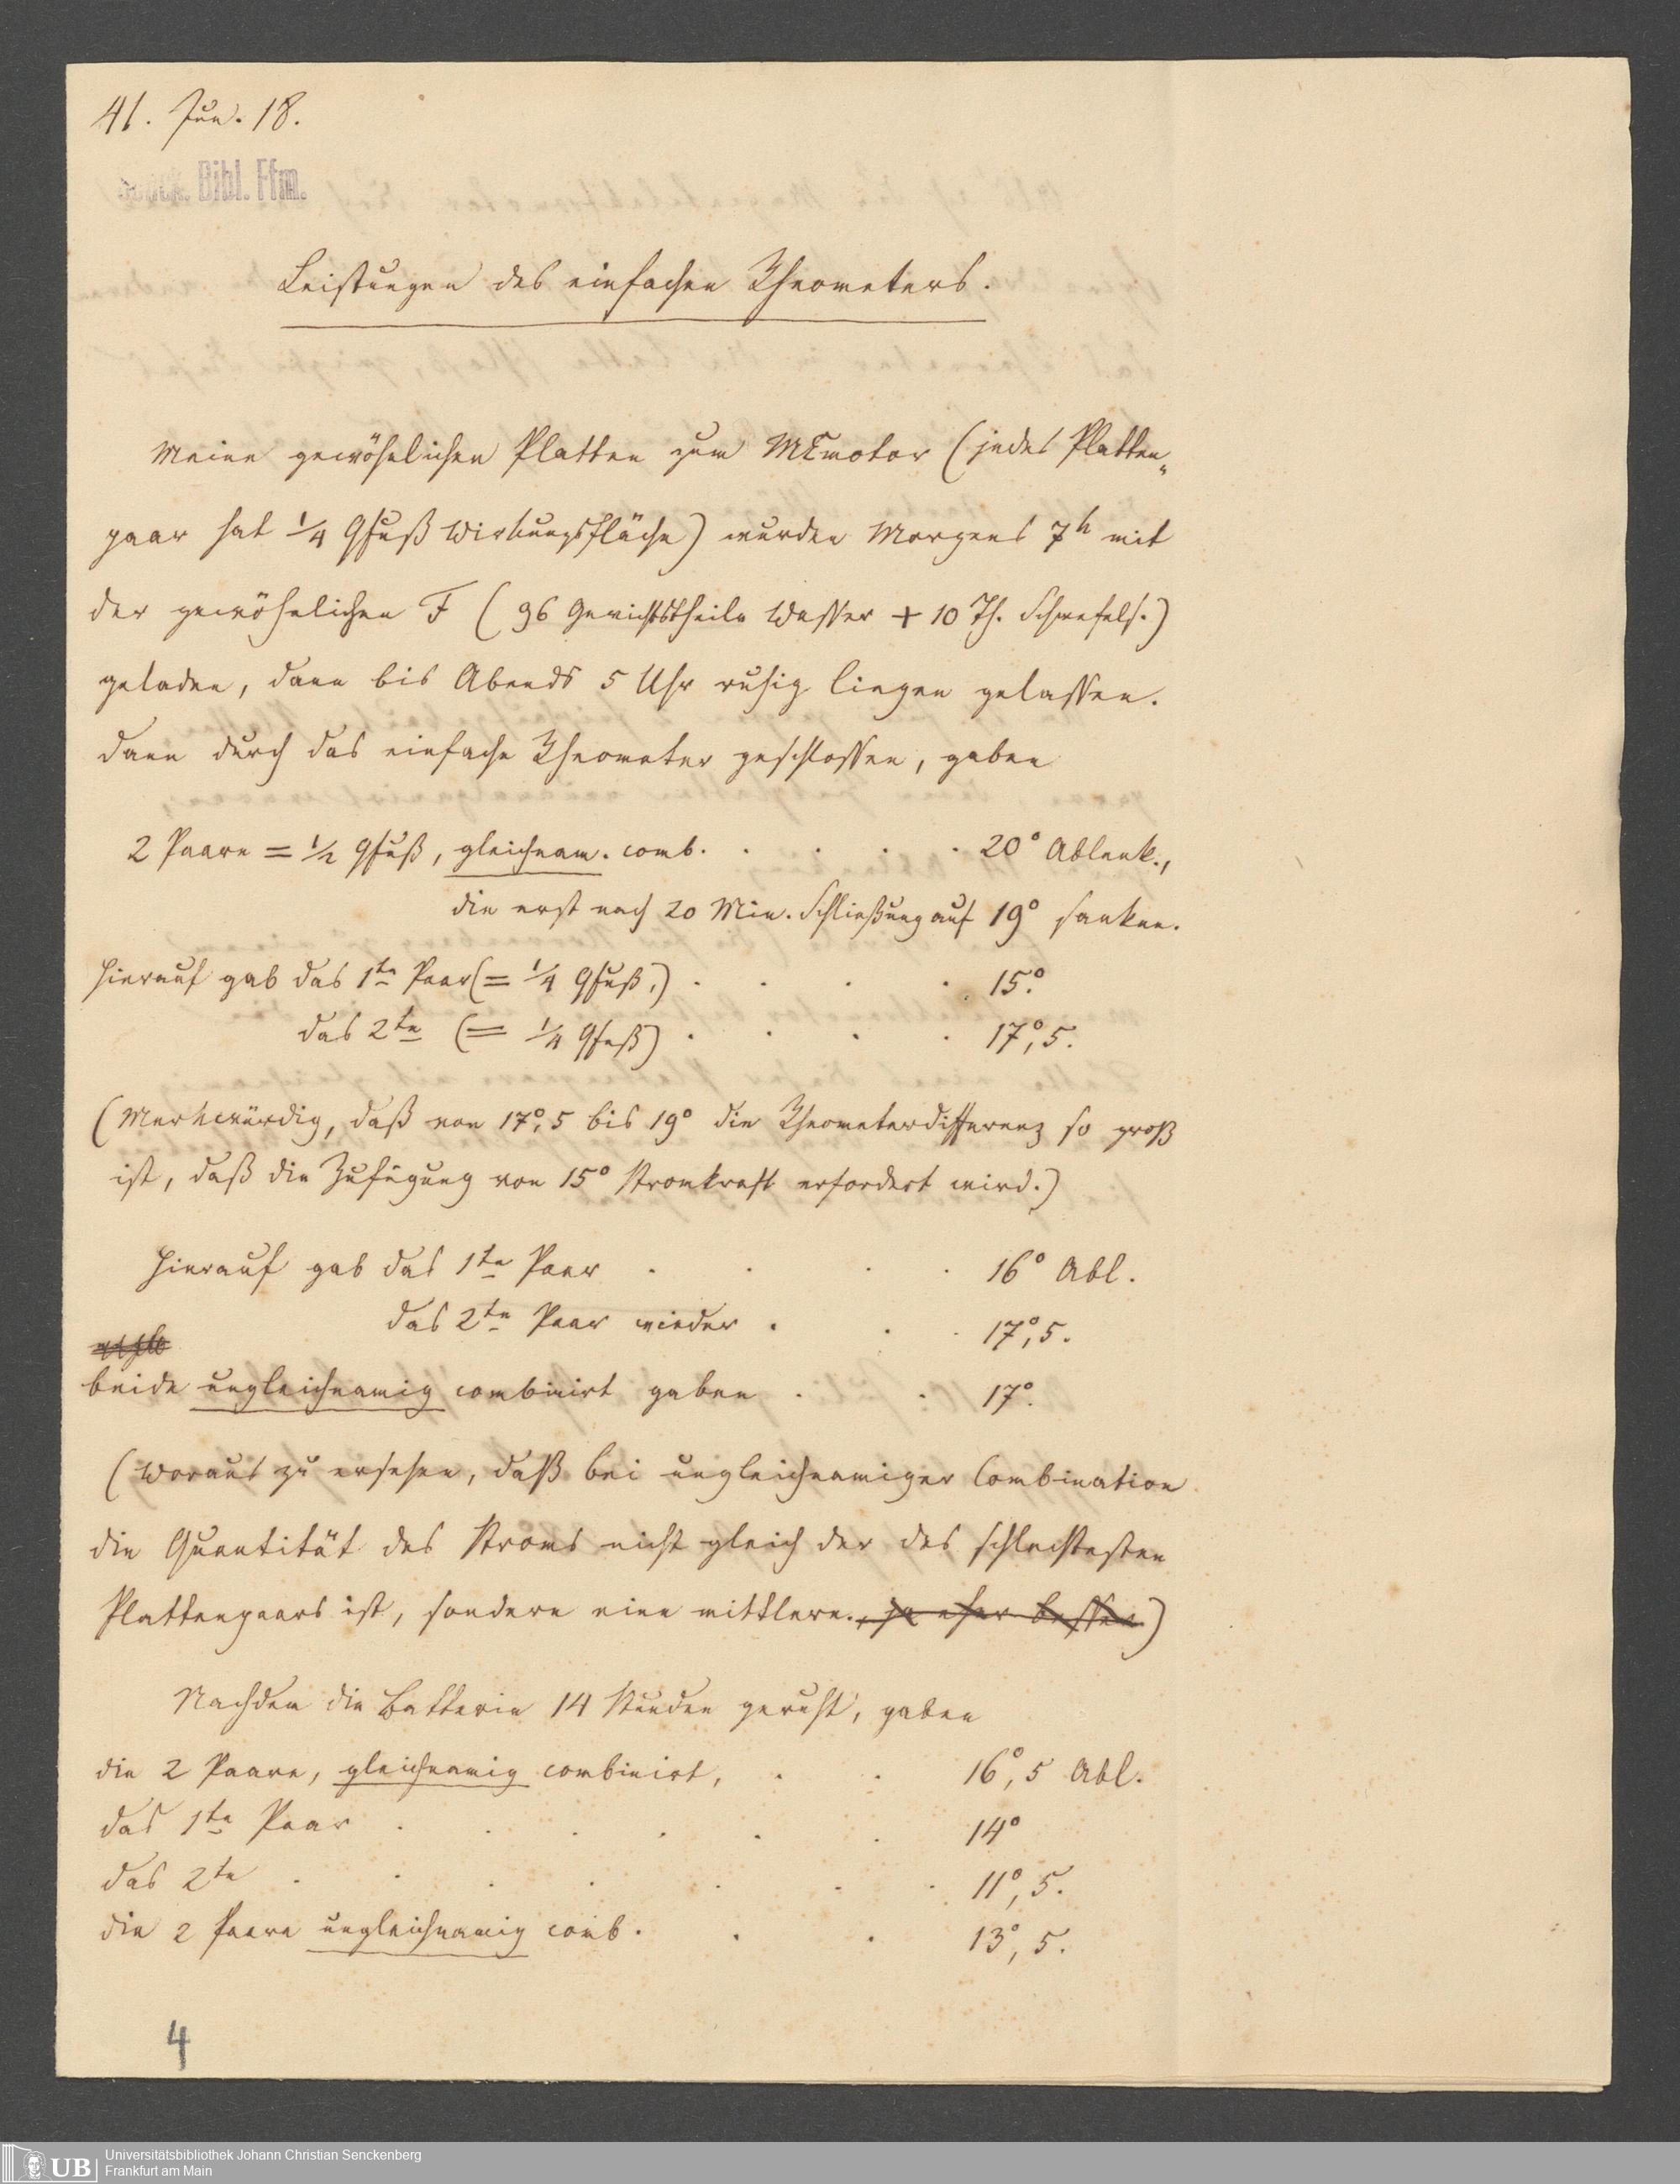 41. Jun. 18.
Senck. Bibl. Ffm.
Leistungen des einfachen Rheometers.
Meine gewöhnlichen Platten zum MEmotor (jedes Platten„
paar hat 1/4 Qfuß Wirkungsfläche) wurden Morgens 7h mit
der gewöhnlichen F (96 Gewichtstheile Wasser + 10 Th. Schwefels.)
geladen, dann bis Abends 5 Uhr ruhig liegen gelassen.
Dann durch das einfache Rheometer geschlossen, gaben
2 Paare = 1/2 Qfuß, gleichnam. comb. . . . . 20° Ablenk.,
die erst nach 20 Min. Schließung auf 19° sanken.
Hierauf gab das 1te Paar (= 1/4 Qfuß,) . . . . 15°.
das 2te (= 1/4 Qfuß) . . . . 17°,5.
(Merkwürdig, daß von 17°,5 bis 19° die Rheometerdifferenz so groß
ist, daß die Zufügung von 15° Stromkraft erfordert wird.)
Hierauf gab das 1te Paar . . . . 16° Abl.
das 2te Paar wieder . . . 17°,5.
beide ungleichnamig combinirt gaben . . 17°.
(Woraus zu ersehen, daß bei ungleichnamiger Combination
die Quantität des Stroms nicht gleich der des schlechtesten
Plattenpaars ist, sondern eine mittlere., ja eher besser)
Nachdem die Batterie 14 Stunden geruht, gaben
die 2 Paare, gleichnamig combinirt, . . 16°,5 Abl.
das 1te Paar . . . . . . 14°
das 2te . . . . . . . 11°,5.
die 2 Paare ungleichnamig comb. . . 13°,5.
4
UB
Universitätsbibliothek Johann Christian Senckenberg
Frankfurt am Main